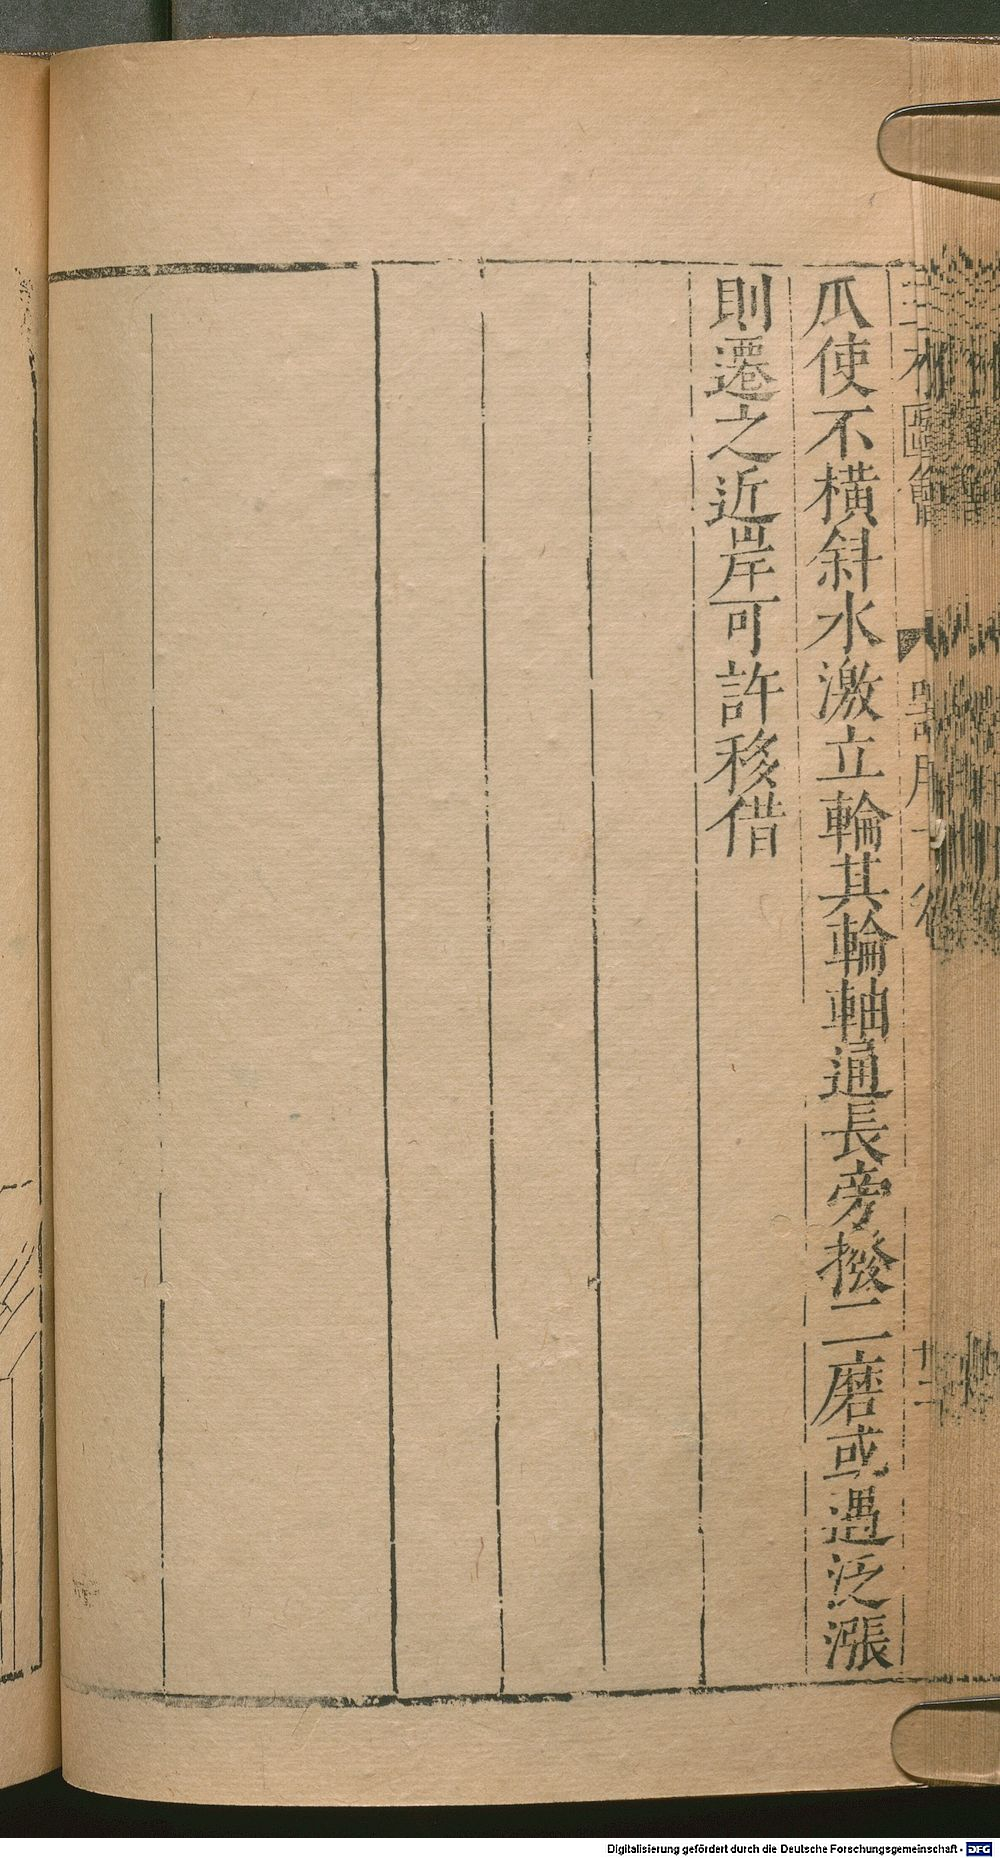 爪使不橫斜水激立輪其輪軸通長旁撥二磨或遇泛漲
則遷之近岸可許移借
Digitalisierung gefördert durch die Deutsche Forschungsgemeinschaft - DFG